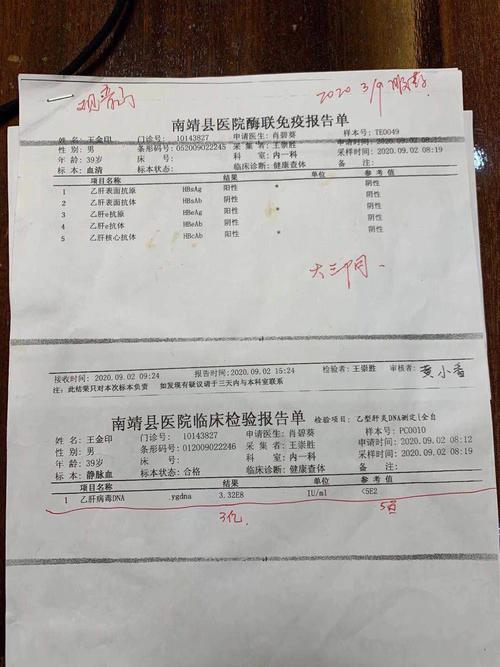 2020 3/9
南靖县医院酶联免疫报告单
姓 名: 王金印 门诊号: 10143827 申请医生: 肖碧葵 样本号: TE0049
性 别: 男 条形码号: 052009022245 采 集 者: 王崇胜 申请时间: 2020.09.02 08:12
年 龄: 39岁 床 号: 科 室: 内一科 采样时间: 2020.09.02 08:19
标 本: 血清 标本状态: 临床诊断: 健康查体 备 注:
项目名称 结果 单位 参 考 值
1 乙肝表面抗原 HBsAg 阳性 * 阴性
2 乙肝表面抗体 HBsAb 阴性 阴性
3 乙肝e抗原 HBeAg 阳性 * 阴性
4 乙肝e抗体 HBeAb 阴性 阴性
5 乙肝核心抗体 HBcAb 阳性 * 阴性
大三阳.
接收时间: 2020.09.02 09:24 报告时间: 2020.09.02 15:24 检验者: 王崇胜 审核者: 黄小香
注: 此结果只对本次标本负责 如发现有疑议请于三天内与本科室联系
南靖县医院临床检验报告单 检验项目: 乙型肝炎DNA测定(全自
姓 名: 王金印 门诊号: 10143827 申请医生: 肖碧葵 样本号: PC0010
性 别: 男 条形码号: 012009022246 采 集 者: 王崇胜 申请时间: 2020.09.02 08:12
年 龄: 39岁 床 号: 科 室: 内一科 采样时间: 2020.09.02 08:19
标 本: 静脉血 标本状态: 合格 临床诊断: 健康查体 备 注:
项目名称 结果 单位 参 考 值
1 乙肝病毒DNA .ygdna 3.32E8 IU/ml <5E2
3亿 5百